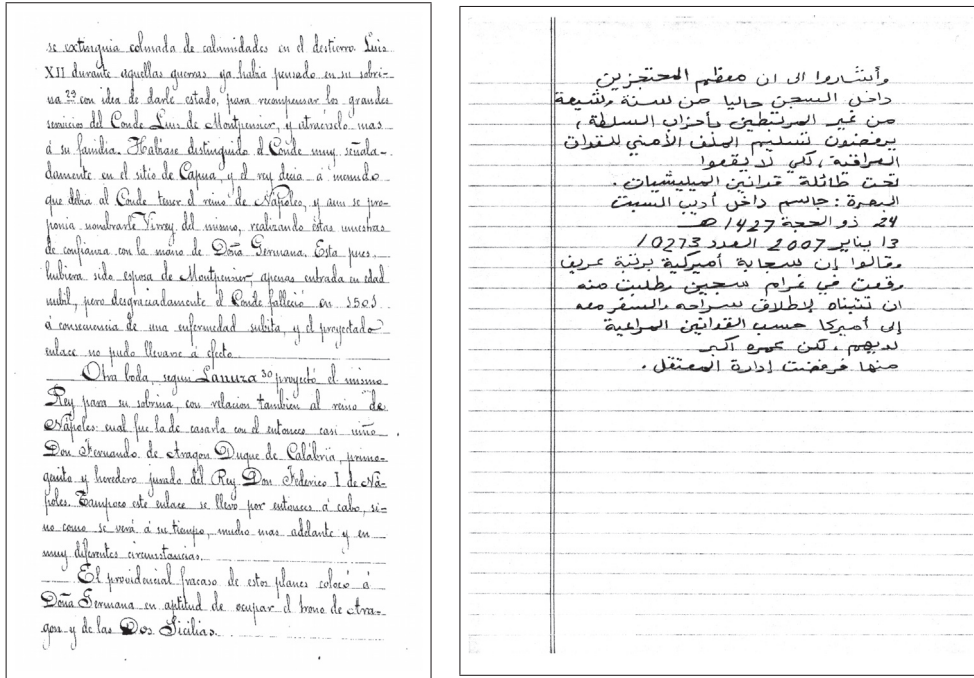 se extinguia colmada de calamidades en el destierro. Luis
XII durante aquellas guerras ya habia pensado en su sobri-
na 29 con idea de darle estado, para recompensar los grandes
servicios del Conde Luis de Montpensier, y atraerselo mas
á su familia. Habíase distinguido el Conde muy señala-
damente en el sitio de Capua, y el rey decia á menudo
que debia al Conde tener el reino de Nápoles, y aun se pro-
ponia nombrarle Virrey del mismo, realizando estas muestras
de confianza con la mano de Doña Germana. Esta pues
hubiera sido esposa de Montpensier, apenas entrada en edad
nubil, pero desgraciadamente el Conde falleció en 1501
á consecuencia de una enfermedad subita, y el proyectado
enlace no pudo llevarse á efecto.
Otra boda, segun Lanuza 30 proyectó el mismo
Rey para su sobrina, con relacion tambien al reino de
Nápoles: cual fue la de casarla con el entonces casi niño
Don Fernando de Aragon Duque de Calábria, primo-
genito y heredero jurado del Rey Don Federico I de Ná-
poles. Tampoco este enlace se llevó por entonces á cabo, si-
no como se verá á su tiempo, mucho mas adelante y en
muy diferentes circunstancias.
El providencial fracaso de estos planes colocó á
Doña Germana en aptitud de ocupar el trono de Ara-
gon y de las Dos Sicilias.
وأشاروا الى ان معظم المحتجزين
داخل السجن حاليا من سنة وشيعة
من غير المرتبطين بأحزاب السلطة ،
يرفضون تسليم الملف الأمني للقوات
العراقية ، لكي لا يقعوا
تحت طائلة قوانين الميليشيات .
البصرة : جاسم داخل أديب السبت
24 ذو الحجة 1427 هـ
13 يناير 2007 العدد 10273
وقالوا إن سجانة أميركية برتبة عريف
وقعت في غرام سجين وطلبت منه
ان تتبناه لإطلاق سراحه والسفر معه
إلى أميركا حسب القوانين المراعية
لديهم ، لكن عمره اكبر
منها فرفضت إدارة المعتقل .